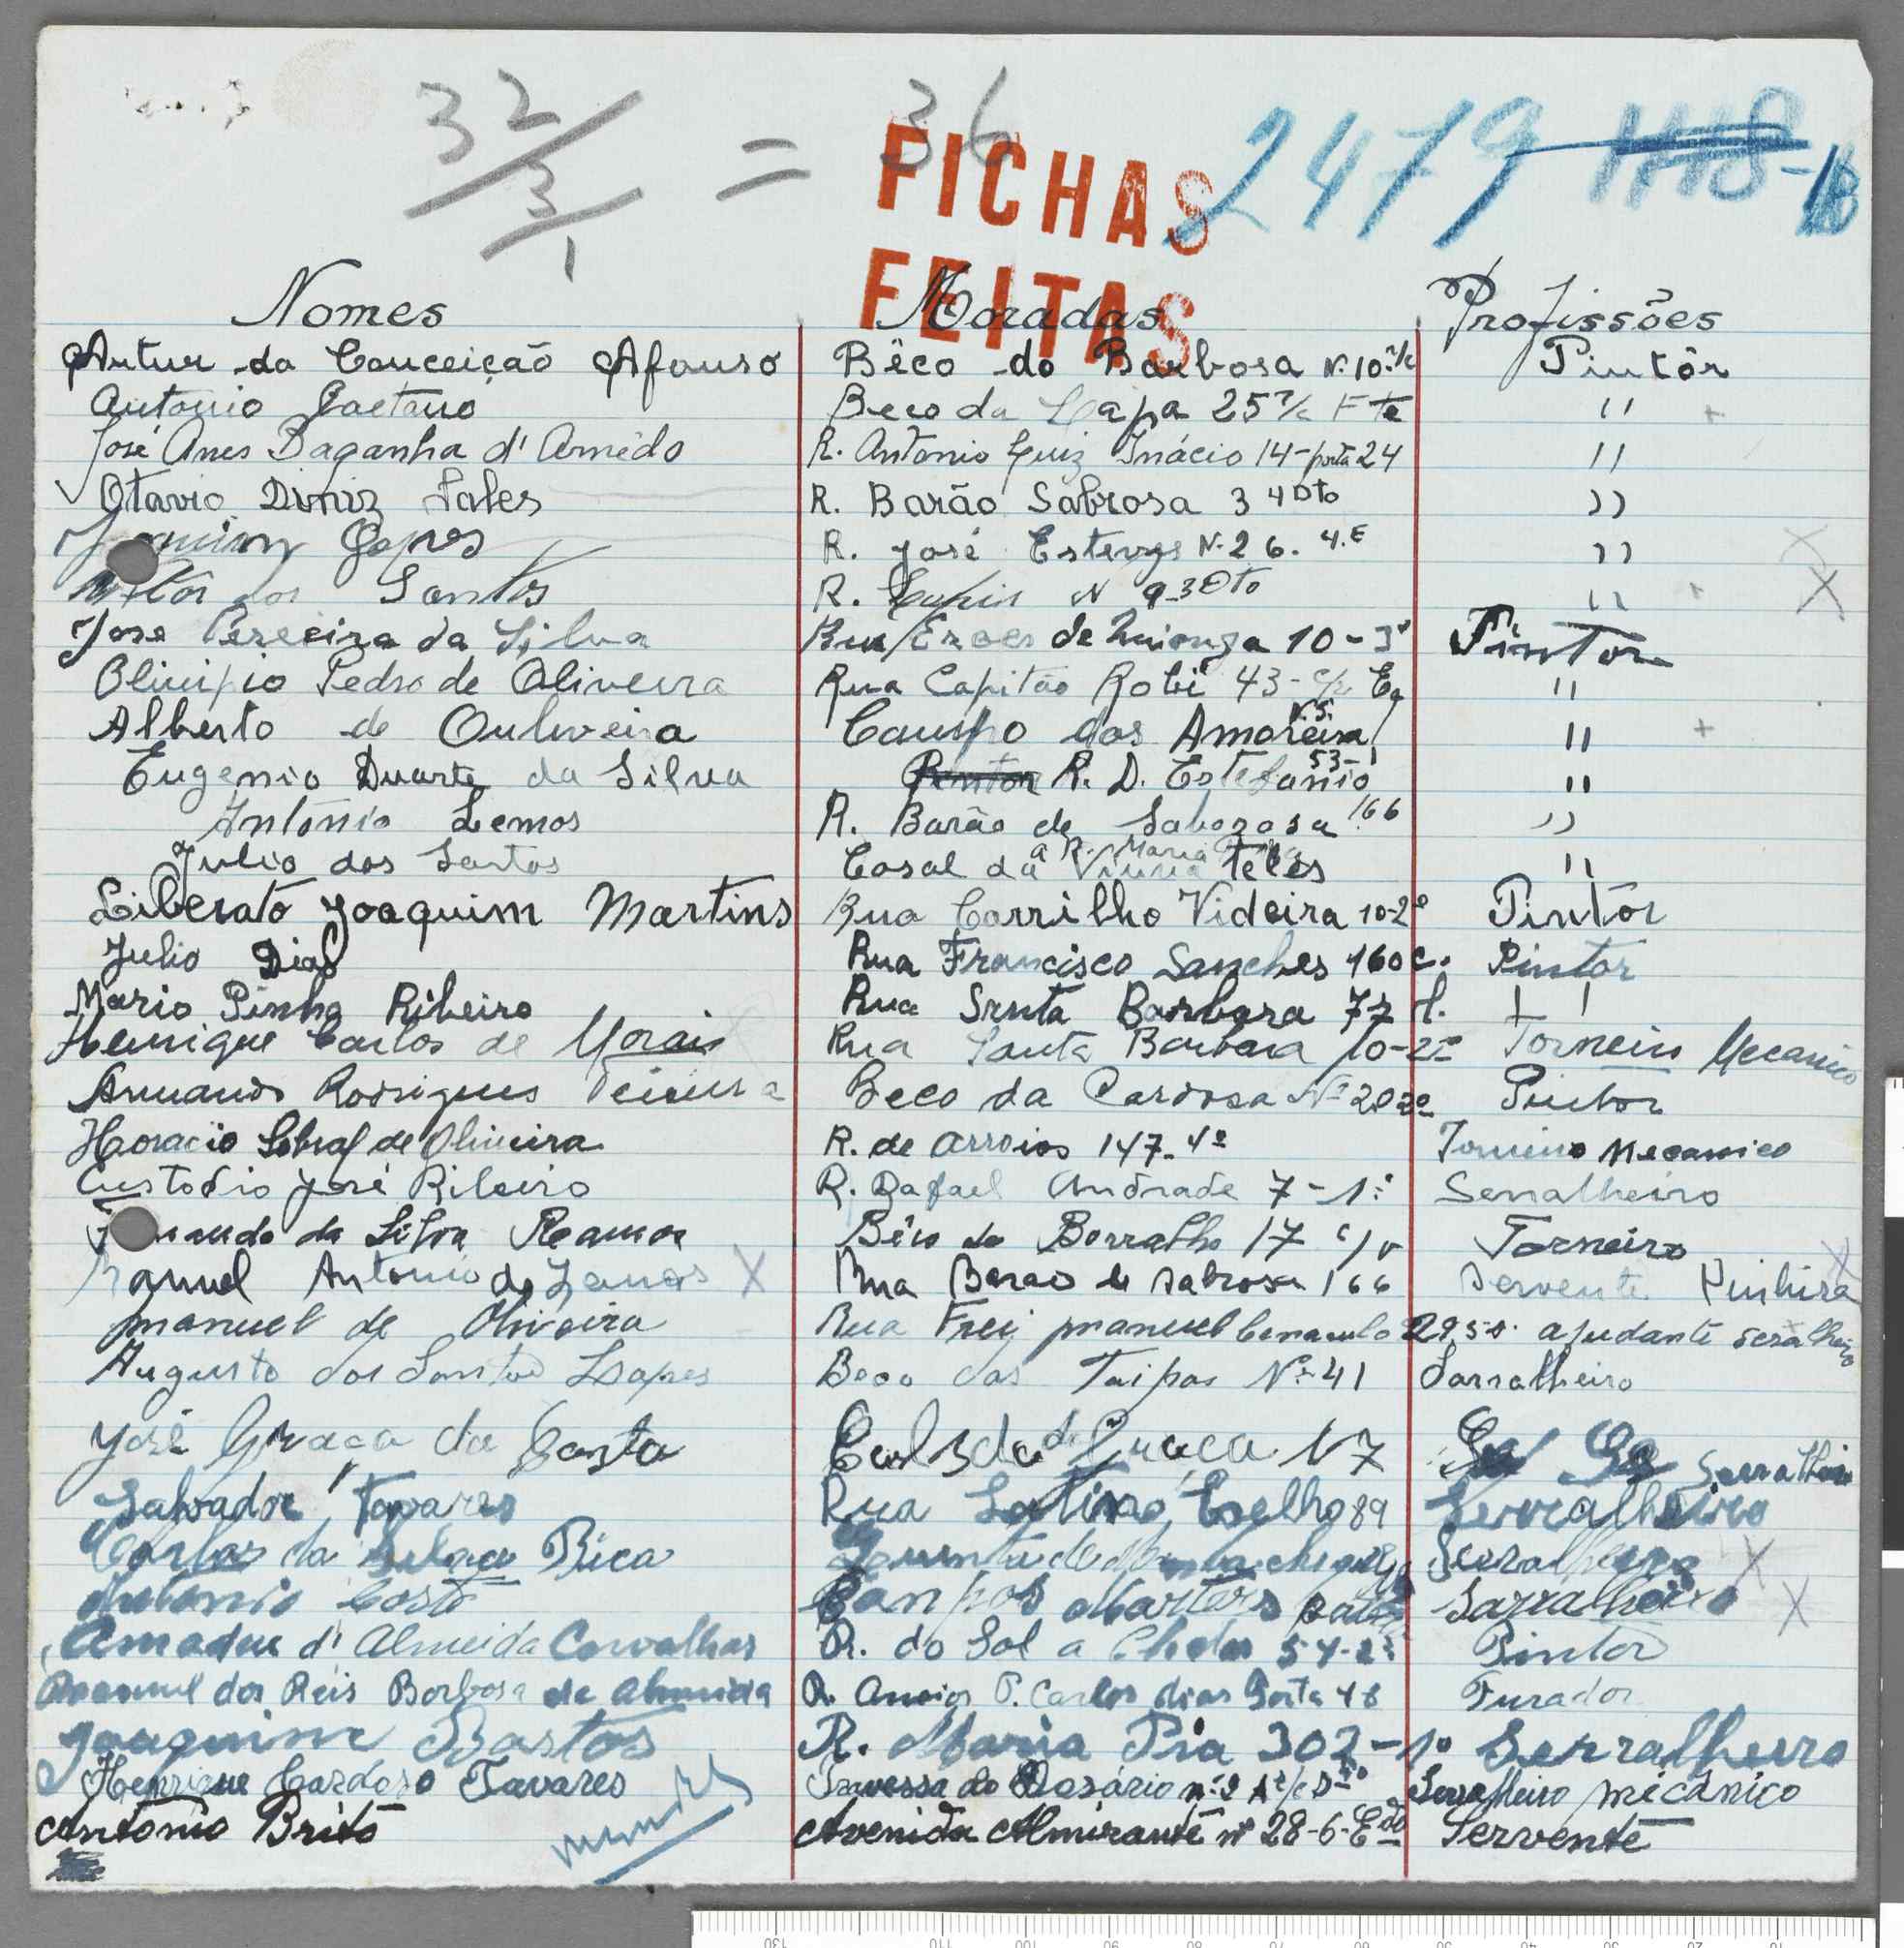 32/3/1 = 36
2479
FICHAS
FEITAS
Nomes Moradas Profissões
Artur da Conceição Afonso Bêco do Barbosa N. 10 r/c Pintôr
Antonio Caetano Beco da Lapa 25 r/c Fte "
José Anes Baganha d' Amêdo R. Antonio Luiz Inácio 14-porta 24 "
Otavio Diniz Sales R. Barão Sabrosa 3 4 Dto "
Lopes R. José Esteves N. 26. 4.E "
dos Santos R. N 9-3 Dto "
Jose Pereeira da Silva Rua 10-3º Pintor
Olimpio Pedro de Oliveira Rua Capitão Robi 43- Eq "
Alberto de Ouliveira Campo das Amoreira N.5. "
Eugenio Duarte da Silva R. D. Estefanio 53-1 "
António Lemos R. Barão de Saborosa 166 "
Julio dos Santos Casal da teles "
Liberato Joaquim Martins Rua Carrilho Videira 10-2º Pintor
Julio Dias Rua Francisco Sanches 160 c. Pintor
Mario Pinho Ribeiro Rua Santa Barbara 77 "
Henrique Carlos de Morais Rua Santa Barbara 10-2º Torneiro Mecanico
Armando Rodrigues Teixeira Beco da Cardosa Nº 20 2º Pintor
Horacio Sobral de Oliveira R. de Arroios 147-4º Torneiro Mecanico
Custodio José Ribeiro R. Rafael Andrade 7-1º Serralheiro
da Silva Ramos Bêco do Borralho 17 Torneiro
Manuel Antonio de Lemos Rua Barao de Sabrosa 166 Servente
manuel de Oliveira Rua Frei manuel Cenaculo 29.5º. ajudante seralheiro
Augusto dos Santos Lopes Beco das Taipas Nº 41 Sarralheiro
José Graça da Costa Calsda da Graca 17 Serralheiro
Salvador Tavares Rua Latino Coelho 89 Serralheiro
Carlos da Silva Bica Serralheiro
Antonio Costa Sarralheiro
Amadeu d' Almeida Carvalhas R. do Sol a Chelas 54-2º Pintor
Manuel dos Reis Barbosa de Almeida R. P. Carlos dias Porta 48 Furador
Joaquim Bastos R. Maria Pia 302-1º Serralheiro
Henrique Cardoso Tavares Travessa do Rosário nº 2 Serralheiro micânico
António Brito Avenida Almirante nº 28-6-Edo Servente